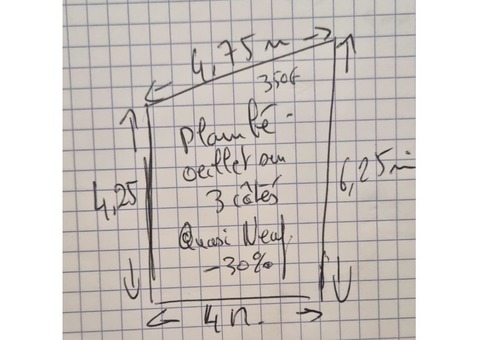 4,75 m
350€
plombé
oeillet sur
3 côtés
Quasi Neuf
-30%
4,25
6,25 m
4 m.